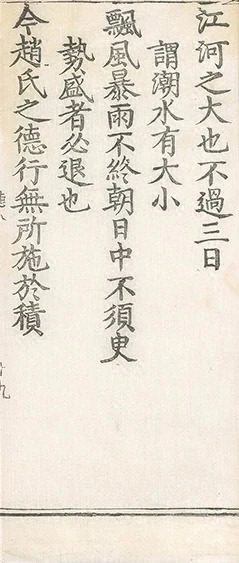 江河之大也不過三日
謂潮水有大小
飄風暴雨不終朝日中不須臾
勢盛者必退也
今趙氏之德行無所施於積